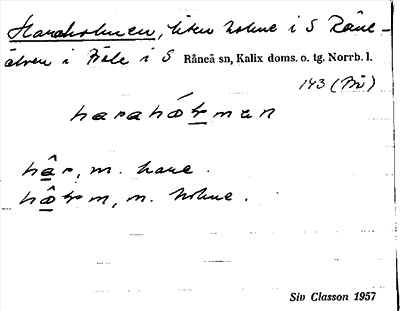 Haraholmen, liten holme i S Råne-
älven i Böle i S Råneå sn, Kalix doms. o. tg. Norrb. l.
143 (Bð)
harahó̱ɫman
hâ̱r, m. hare.
hô̱ɫm, m. holme.
Siv Classon 1957